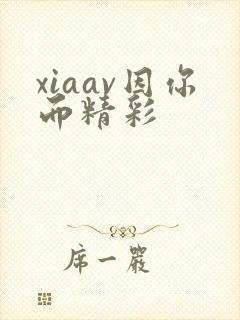 xiaav因你
而精彩
席一岩